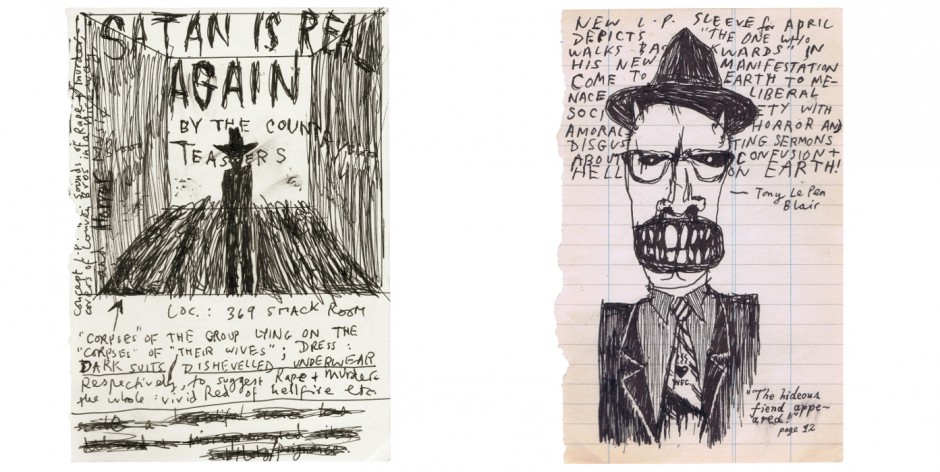 SATAN IS REAL
AGAIN
BY THE COUNT
TEASERS
LOC.: 369 SMACK ROOM
"CORPSES" OF THE GROUP LYING ON THE
"CORPSES" OF "THEIR WIVES"; DRESS:
DARK SUITS / DISHEVELLED UNDERWEAR
Respectively, to suggest Rape + Murder.
the whole: vivid Red of hellfire etc.
NEW L.P. SLEEVE for APRIL
DEPICTS "THE ONE WHO
WALKS BACKWARDS" IN
HIS NEW MANIFESTATION
COME TO EARTH TO ME-
NACE LIBERAL
SOCIETY WITH
AMORAL HORROR AND
DISGUSTING SERMONS
ABOUT CONFUSION +
HELL ON EARTH!
— Tony Le Pen
Blair
NFC
"The hideous
fiend appe-
ared!"
page 12